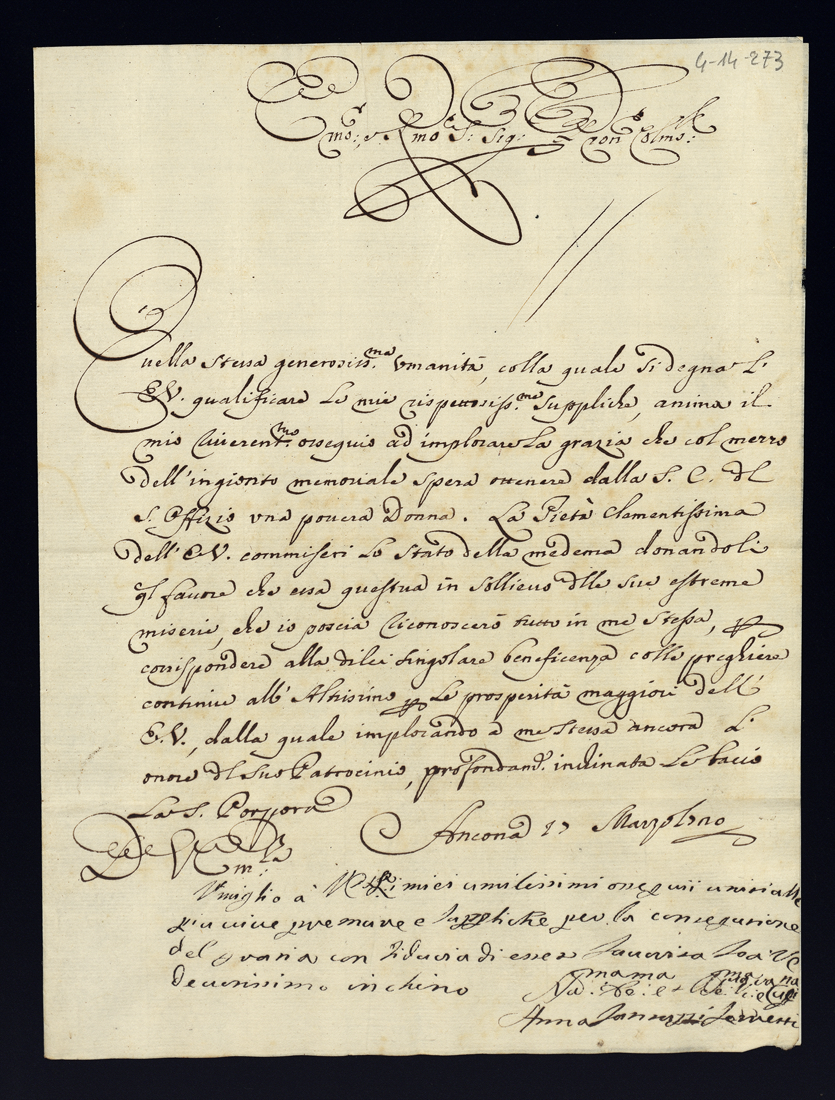 4-14-273
Emo: e Rmo Sig: Sig: Pron Colmo:
Quella stessa generosiss.ma Umanità, colla quale si degna L'
E.V. qualificare le mie rispettosiss.me suppliche, anima il
mio riverent.mo ossequio ad implorare la grazia che col mezzo
dell'ingionto memoriale spera ottenere dalla S. C. del
S. Offizio una povera Donna. La Pietà Clementissima
dell'E.V. commiseri lo stato della medema donandoli
quel favore che essa questua in sollievo delle sue estreme
miserie, che io poscia riconoscerò tutto in me stessa, per
corrispondere alla di lei singolare beneficenza colle preghiere
continue all'Altissimo per le prosperità maggiori dell'
E.V., dalla quale implorando a me stessa ancora L'
onore del suo Patrocinio, profondam.e inclinata Le bacio
La S. Porpora
Ancona 17 Marzo
Umiglio à miei umilissimi ossequii unisi alle
piu vive premure e suppliche per la consegusione
del gratia con fiducia di esser favorita Loa VE
devotissimo inchino
Anna